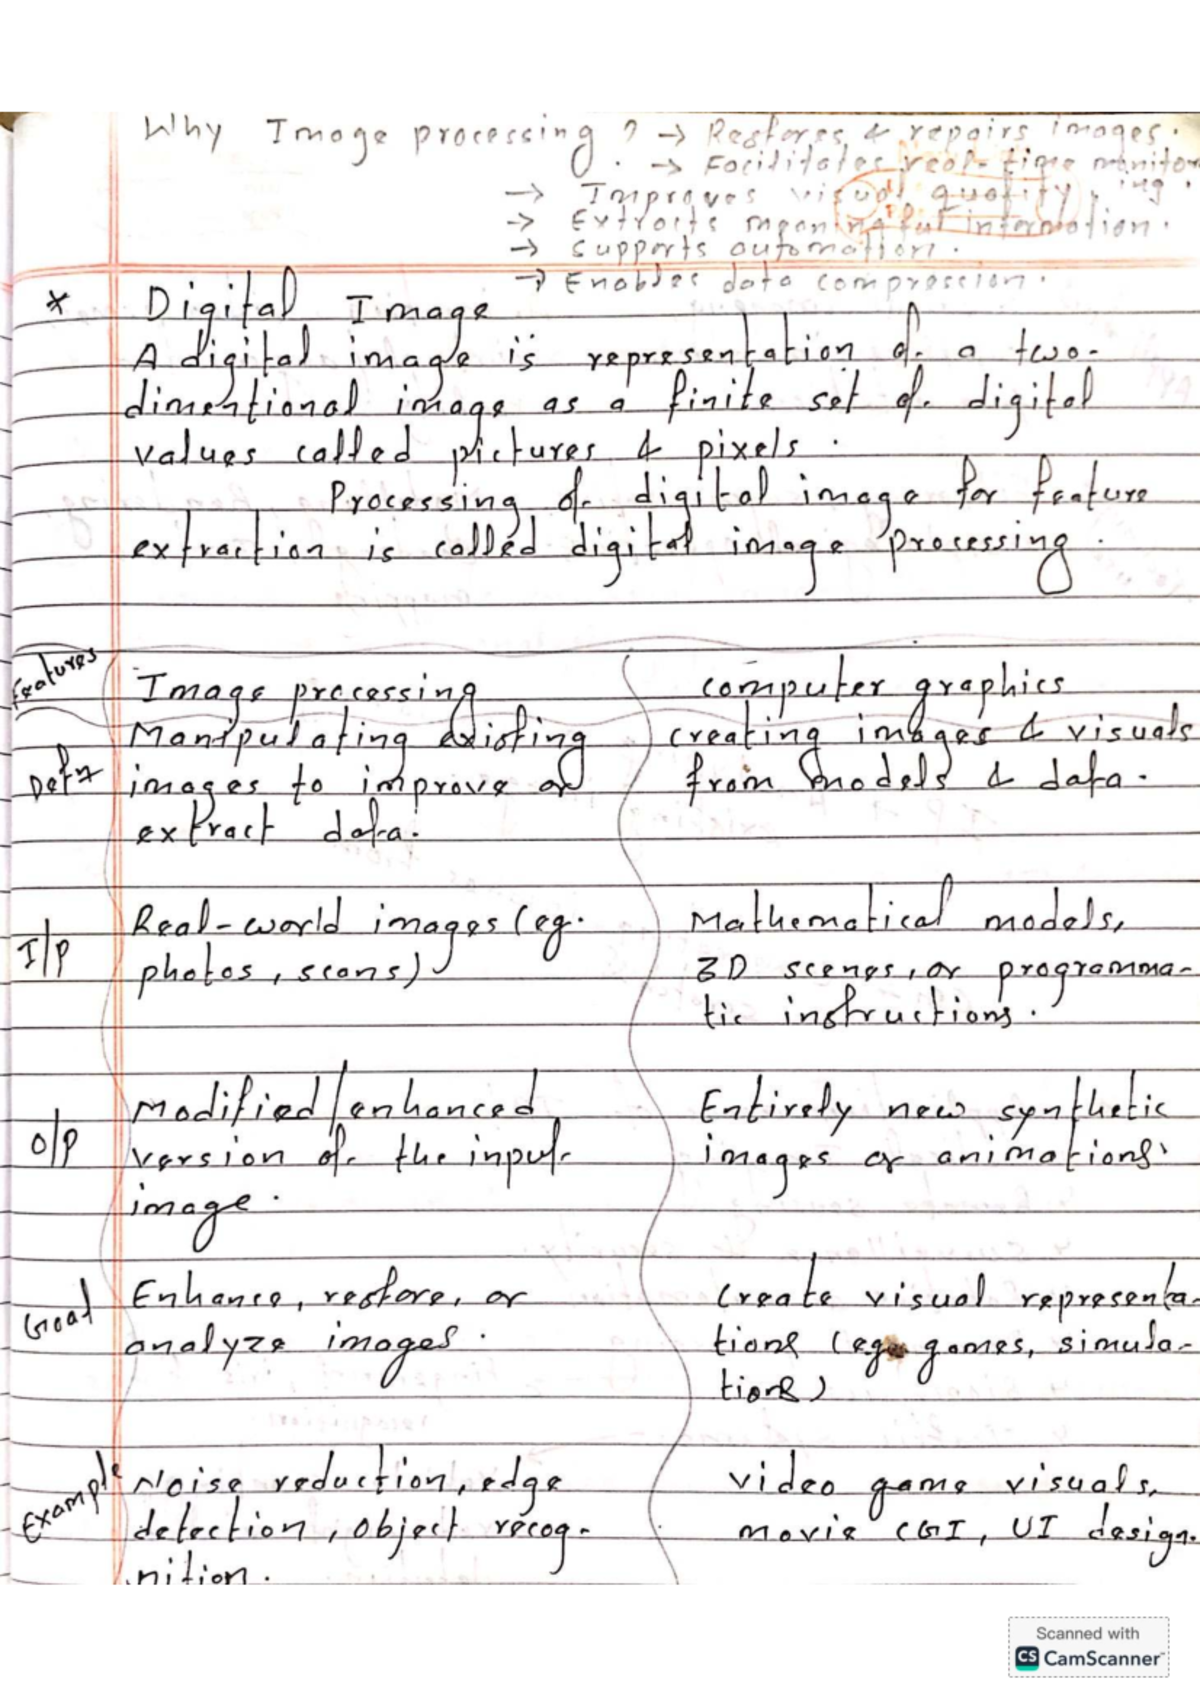 Why Image processing ? → Restores & repairs images.
→ Facilitates real-time monitor
ing.
→ Improves visual quality.
→ Extracts meaningful information.
→ supports automation.
→ Enables data compression.
* Digital Image
A digital image is representation of a two-
dimentional image as a finite set of digital
values called pictures & pixels.
Processing of digital image for feature
extraction is called digital image processing.
Features Image processing computer graphics
Defn Manipulating existing creating images & visuals
images to improve or from models & data.
extract data.
I/P Real-world images (eg. Mathematical models,
photos, scans) 3D scenes, or programma-
tic instructions.
O/P Modified/enhanced Entirely new synthetic
version of the input images or animations.
image.
Goal Enhance, restore, or Create visual representa-
analyze images. tions (eg games, simula-
tions)
Example Noise reduction, edge video game visuals,
detection, object recog- movie CGI, UI design.
nition.
Scanned with
CS CamScanner